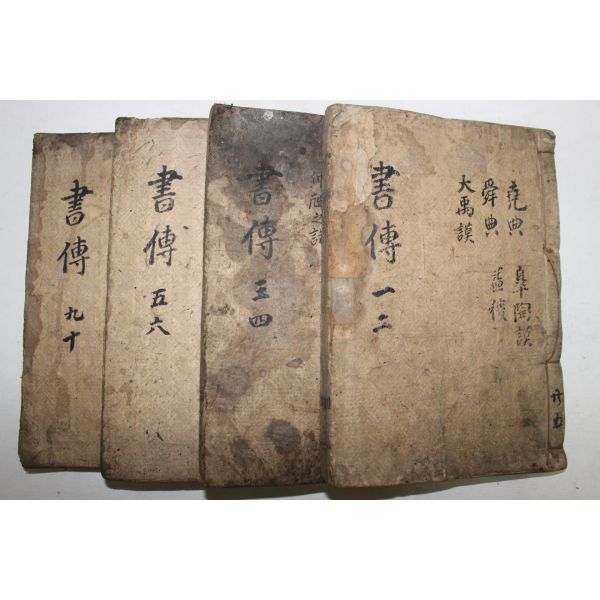 書傳 一二
堯典
舜典
大禹謨
臯陶謨
益稷
計五
書傳 三四
之
書傳 五六
書傳 九十